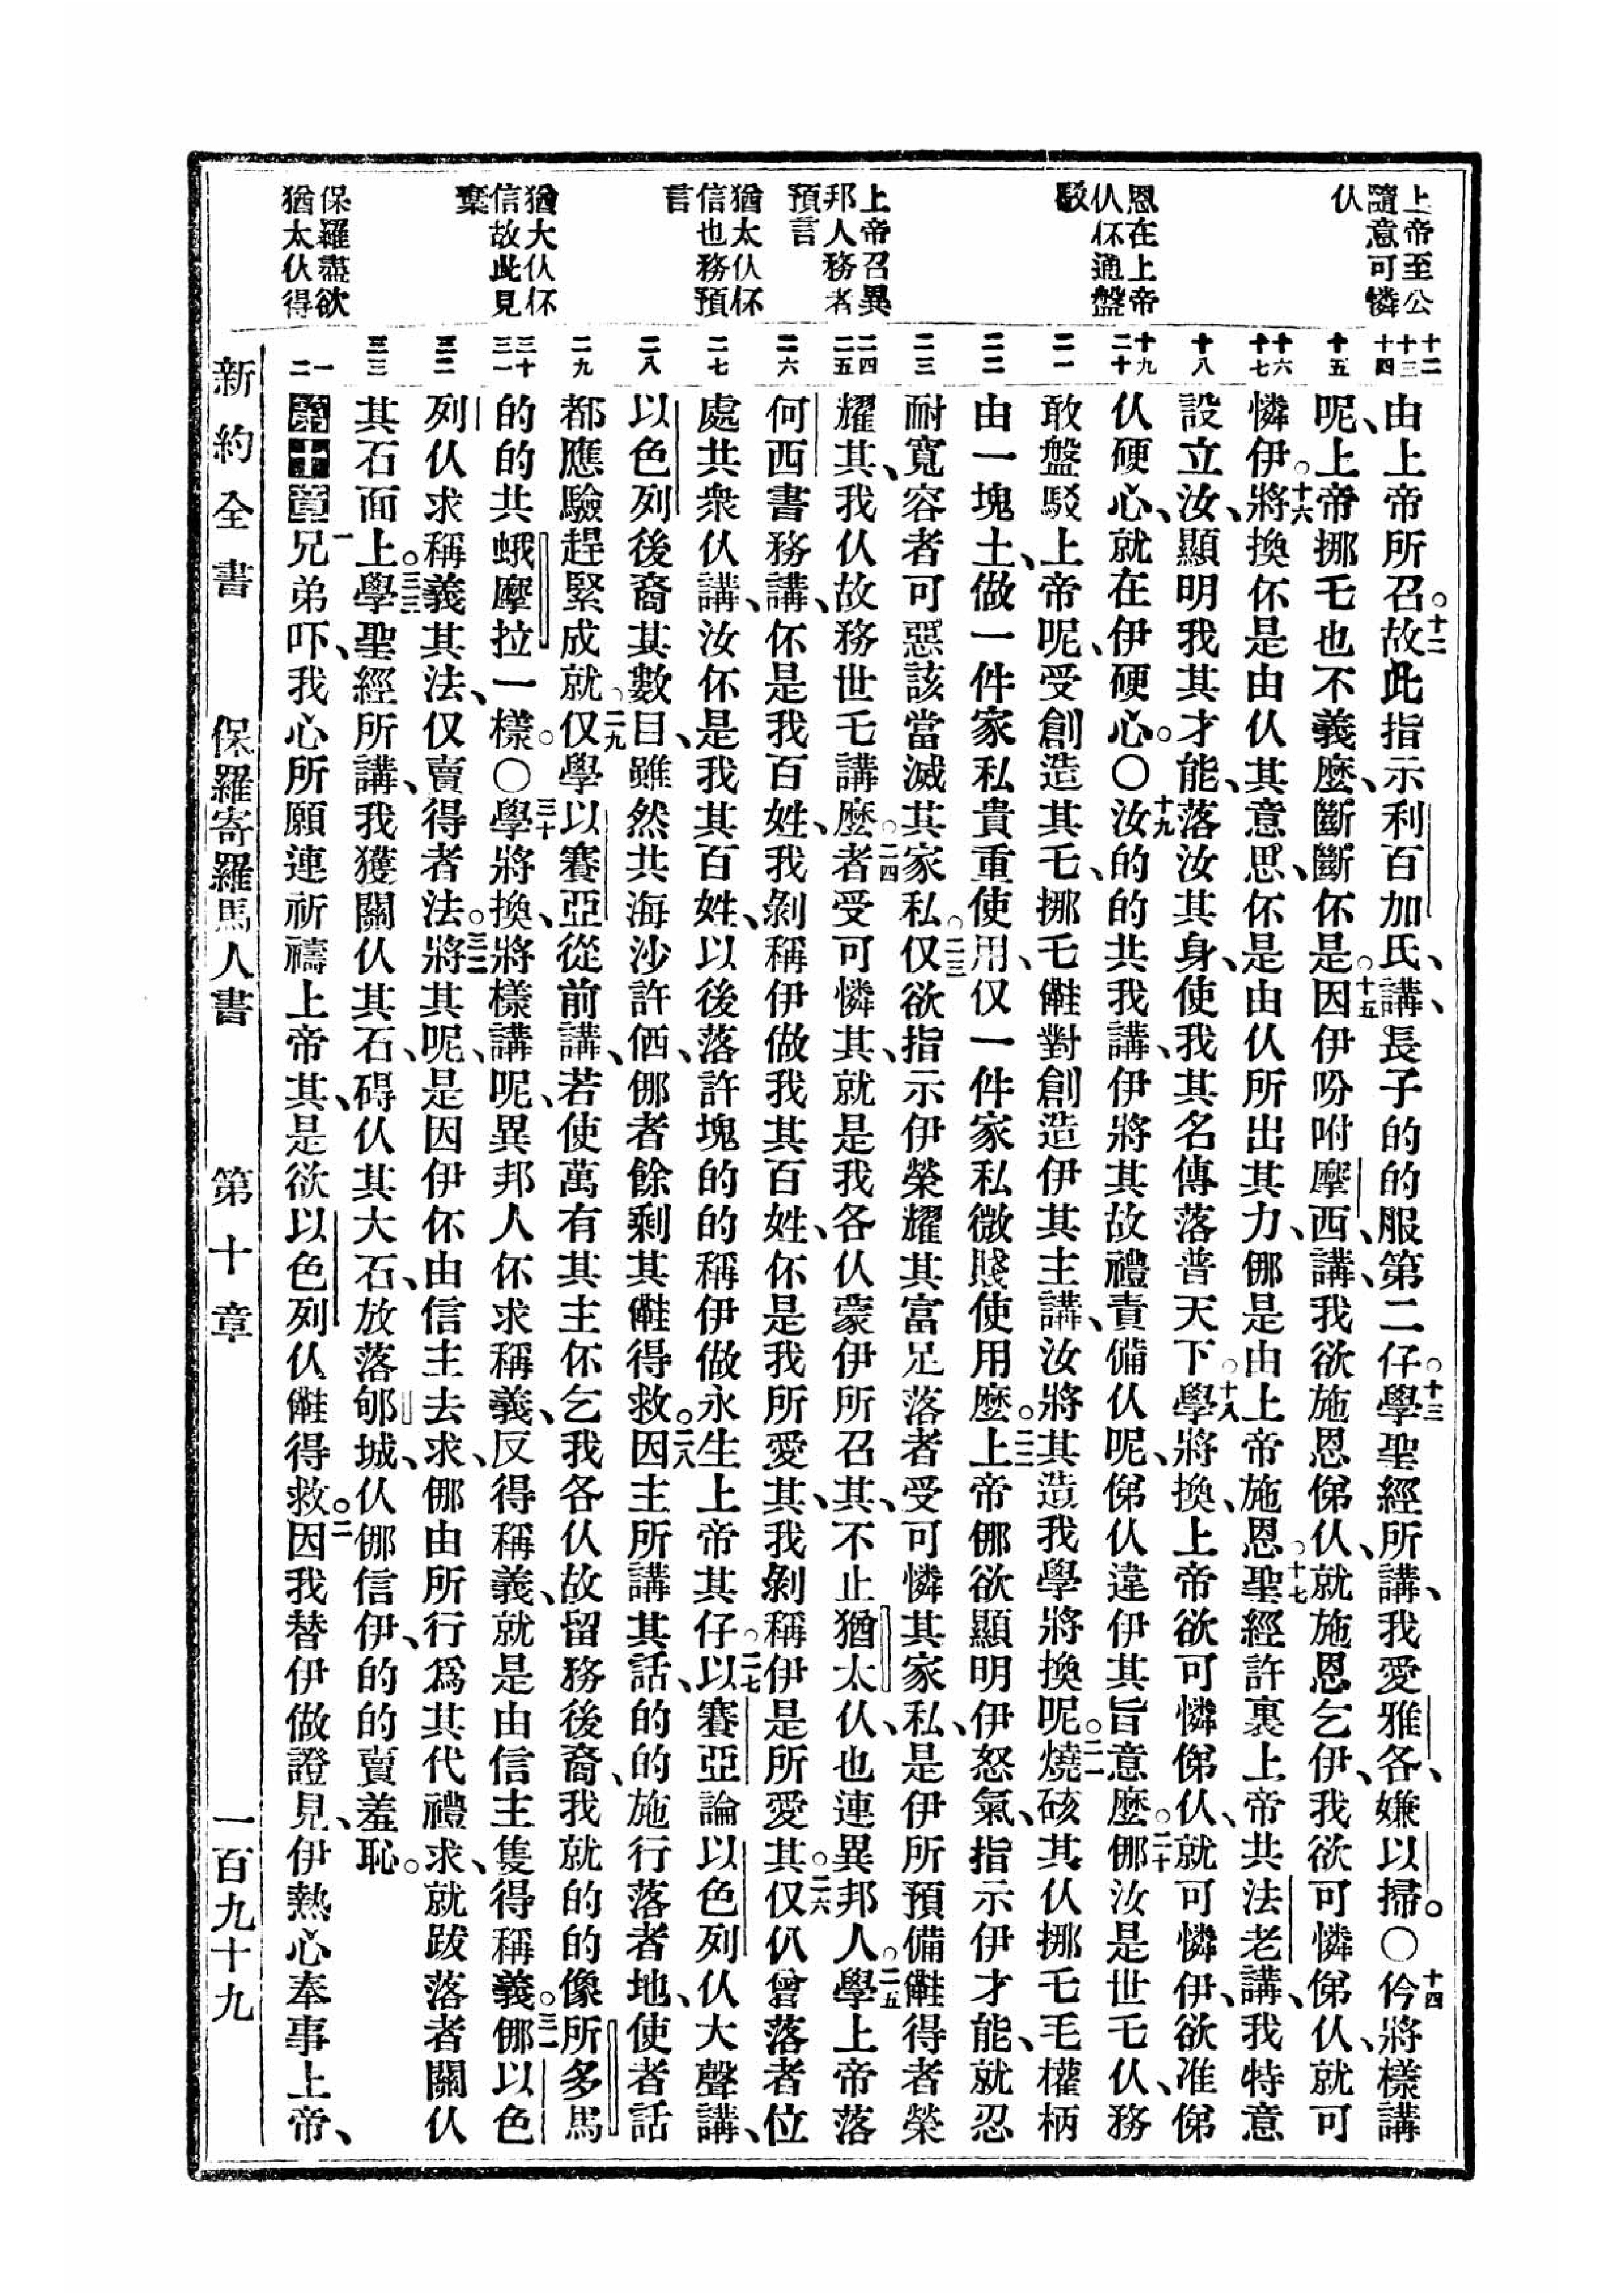 上帝至公
隨意可憐
仈
恩在上帝
仈伓通盤
駁
上帝召異
邦人務者
預言
猶太仈伓
信也務預
言
猶大仈伓
信故此見
棄
保羅盡欲
猶太仈得
十二
十三
十四
十五
十六
十七
十八
十九
二十
二一
二二
二三
二四
二五
二六
二七
二八
二九
三十
三一
三二
三三
一
二
由上帝所召。十二故此指示利百加氏、講、長子的的服第二仔。十三學聖經所講、我愛雅各、嫌以掃。〇十四仱將樣講
呢、上帝挪乇也不義麽、斷斷伓是。十五因伊吩咐摩西、講、我欲施恩俤仈、就施恩乞伊、我欲可憐俤仈、就可
憐伊。十六將換伓是由仈其意思、伓是由仈所出其力、㑚是由上帝施恩。十七聖經許裏上帝共法老講、我特意
設立汝、顯明我其才能、落汝其身、使我其名傳落普天下。十八學將換、上帝欲可憐俤仈、就可憐伊、欲准俤
仈硬心、就在伊硬心。〇十九汝的的共我講、伊將其故禮責備仈呢、俤仈違伊其旨意麽。二十㑚汝是世乇仈、務
敢盤駁上帝呢、受創造其乇、挪乇㒉對創造伊其主講、汝將其造我學將換呢。二一燒硋其仈挪乇毛權柄
由一塊土、做一件家私貴重使用、仅一件家私微賤使用麽。二二上帝㑚欲顯明伊怒氣、指示伊才能、就忍
耐寬容者可惡該當滅其家私。二三仅欲指示伊榮耀其富足落者受可憐其家私、是伊所預備㒉得者榮
耀其、我仈故務世乇講麽。二四者受可憐其、就是我各仈蒙伊所召其、不止猶太仈、也連異邦人。二五學上帝落
何西書務講、伓是我百姓、我剝稱伊做我其百姓、伓是我所愛其、我剝稱伊是所愛其。二六仅仈曾落者位
處共衆仈講、汝伓是我其百姓、以後落許塊的的稱伊做永生上帝其仔。二七以賽亞論以色列仈大聲講、
以色列後裔其數目、雖然共海沙許価、㑚者餘剩其㒉得救。二八因主所講其話、的的施行落者地、使者話
都應驗趕緊成就。二九仅學以賽亞從前講、若使萬有其主伓乞我各仈故留務後裔、我就的的像所多馬
的的共蛾摩拉一樣。〇三十學將換、將樣講呢、異邦人伓求稱義、反得稱義、就是由信主隻得稱義。三一㑚以色
列仈求稱義其法、仅賣得者法。三二將其呢、是因伊伓由信主去求、㑚由所行爲其代禮求、就跋落者關仈
其石面上。三三學聖經所講、我獲關仈其石、碍仈其大石、放落郇城、仈㑚信伊、的的賣羞恥。
第十章一兄弟吓、我心所願連祈禱上帝其、是欲以色列仈㒉得救。二因我替伊做證見、伊熱心奉事上帝、
新約全書 保羅寄羅馬人書 第十章 一百九十九